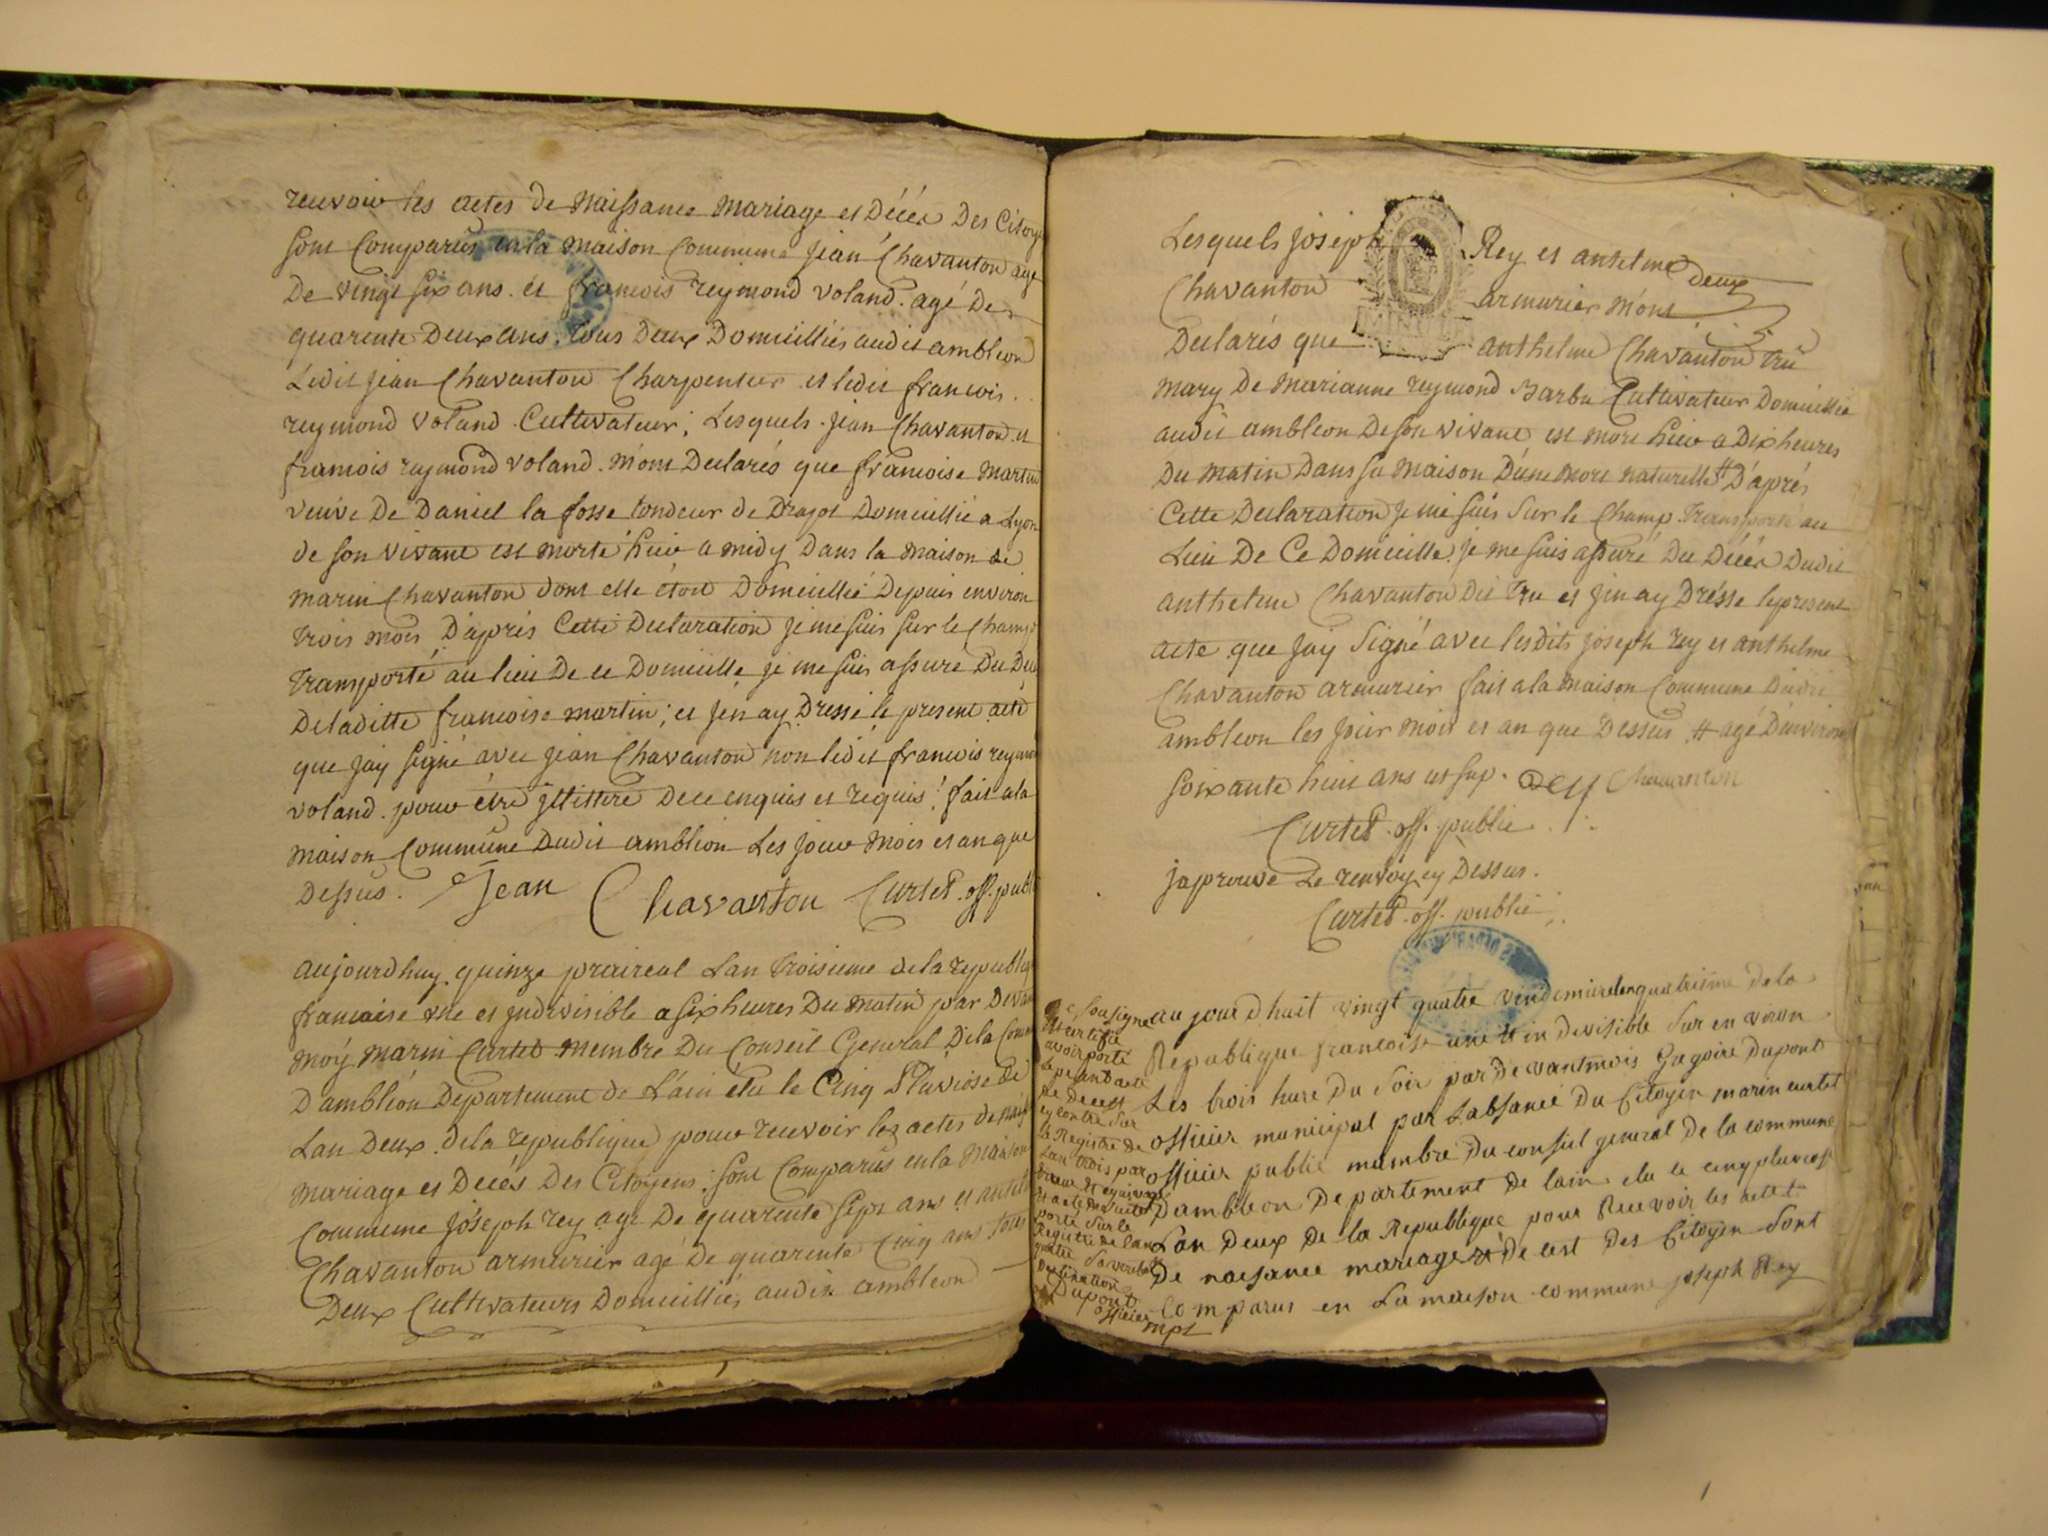 recevoir les actes de Naissance Mariage et Décés Des Citoy
sont Comparus en la Maison Commune Jean Chavanton agé
De vingt six ans. et francois reymond voland. agé De
quarente Deux ans. tous Deux Domicilliés audit ambleon
Ledit Jean Chavanton Charpentier et ledit francois.
reymond voland. Cultivateur; Lesquels. Jean Chavanton et
francois reymond voland. m'ont Declarés que francoise Martin
veuve De Daniel la fosse tondeur de Drapt Domicillié a Lyon
de son vivant est morte hier a midy Dans la Maison de
Marin Chavanton dont elle étoit Domicillié Depuis environ
trois mois. D'aprés Cette Declaration je me suis sur le Champ
Transporté au lieu De ce Domicille je me suis assuré Du De
De laditte francoise martin; et j'en ay Dressé le present acte
que jay signé avec jean Chavanton non ledit francois reymond
voland. pour être De ce enquis et requis! fait a la
Maison Commune Dudit ambleon Les jour Mois et an que
Dessus. Jean Chavanton Curtet. off. publi
aujourdhuy quinze praireal Lan troisieme de la republiq
francaise une et indivisible a six heures Du Matin par Devan
Moy Marin Curtet Membre Du Conseil General De la Com
D'ambléon Departement de L'ain élu le Cinq Pluviose De
Lan Deux. de la republique pour recevoir les actes de nais
Mariage et Decés Des Citoyens; sont Comparus en la Maison
Commune joseph rey agé De quarente sept ans et antel
Chavanton armurier agé De quarente Cinq ans tous
Deux Cultivateurs Domicilliés audit ambleon
Lesquels joseph Rey et anselme deux
Chavanton armurier M'ont
Declarés que anthelme Chavanton Tru
mary De Marianne reymond Barbu Cultivateur Domicillié
audit ambleon De son vivant est mort hier a Dix heures
Du Matin Dans sa Maison D'une mort naturelle # D'aprés
Cette Declaration je me suis sur le Champ Transporté au
Lieu De Ce Domicille. je me suis assuré Du Décés Dudit
anthelme Chavanton Dit Tru et j'en ay Drésse le present
acte que jay signé avec lesdits joseph rey et anthelme
Chavanton armurier fait a la Maison Commune Dudit
ambleon les jour Mois et an que Dessus # agé D'environ
soixante huit ans ut sup. Rey Chavanton
Curtet. off. public.
japrouve Le renvoy cy Dessus.
Curtet. off. public
au jour d huit vingt quatre vindemiere lan quatrieme de la
Republique francoise une et in devisible sur en viron
Les trois hure du soir par devant mois Gregoire dupont
officier municipal par Labsance du Citoyen marin curtet
officier public mambre du consiel general de la commune
Dambleon Departement de lain elu le cinq pluviose
Lan deux De la Republique pour Recevoir les actet
De naisance mariage et De cest Des Citoyen sont
Comparus en La maison commune joseph Rey
Je soussigne
certifie
avoir porté
le present acte
de deces
cy contre sur
le Registre de
Lan trois par
porté sur le
Registre de lan
quatre
Dupont
officier mpl